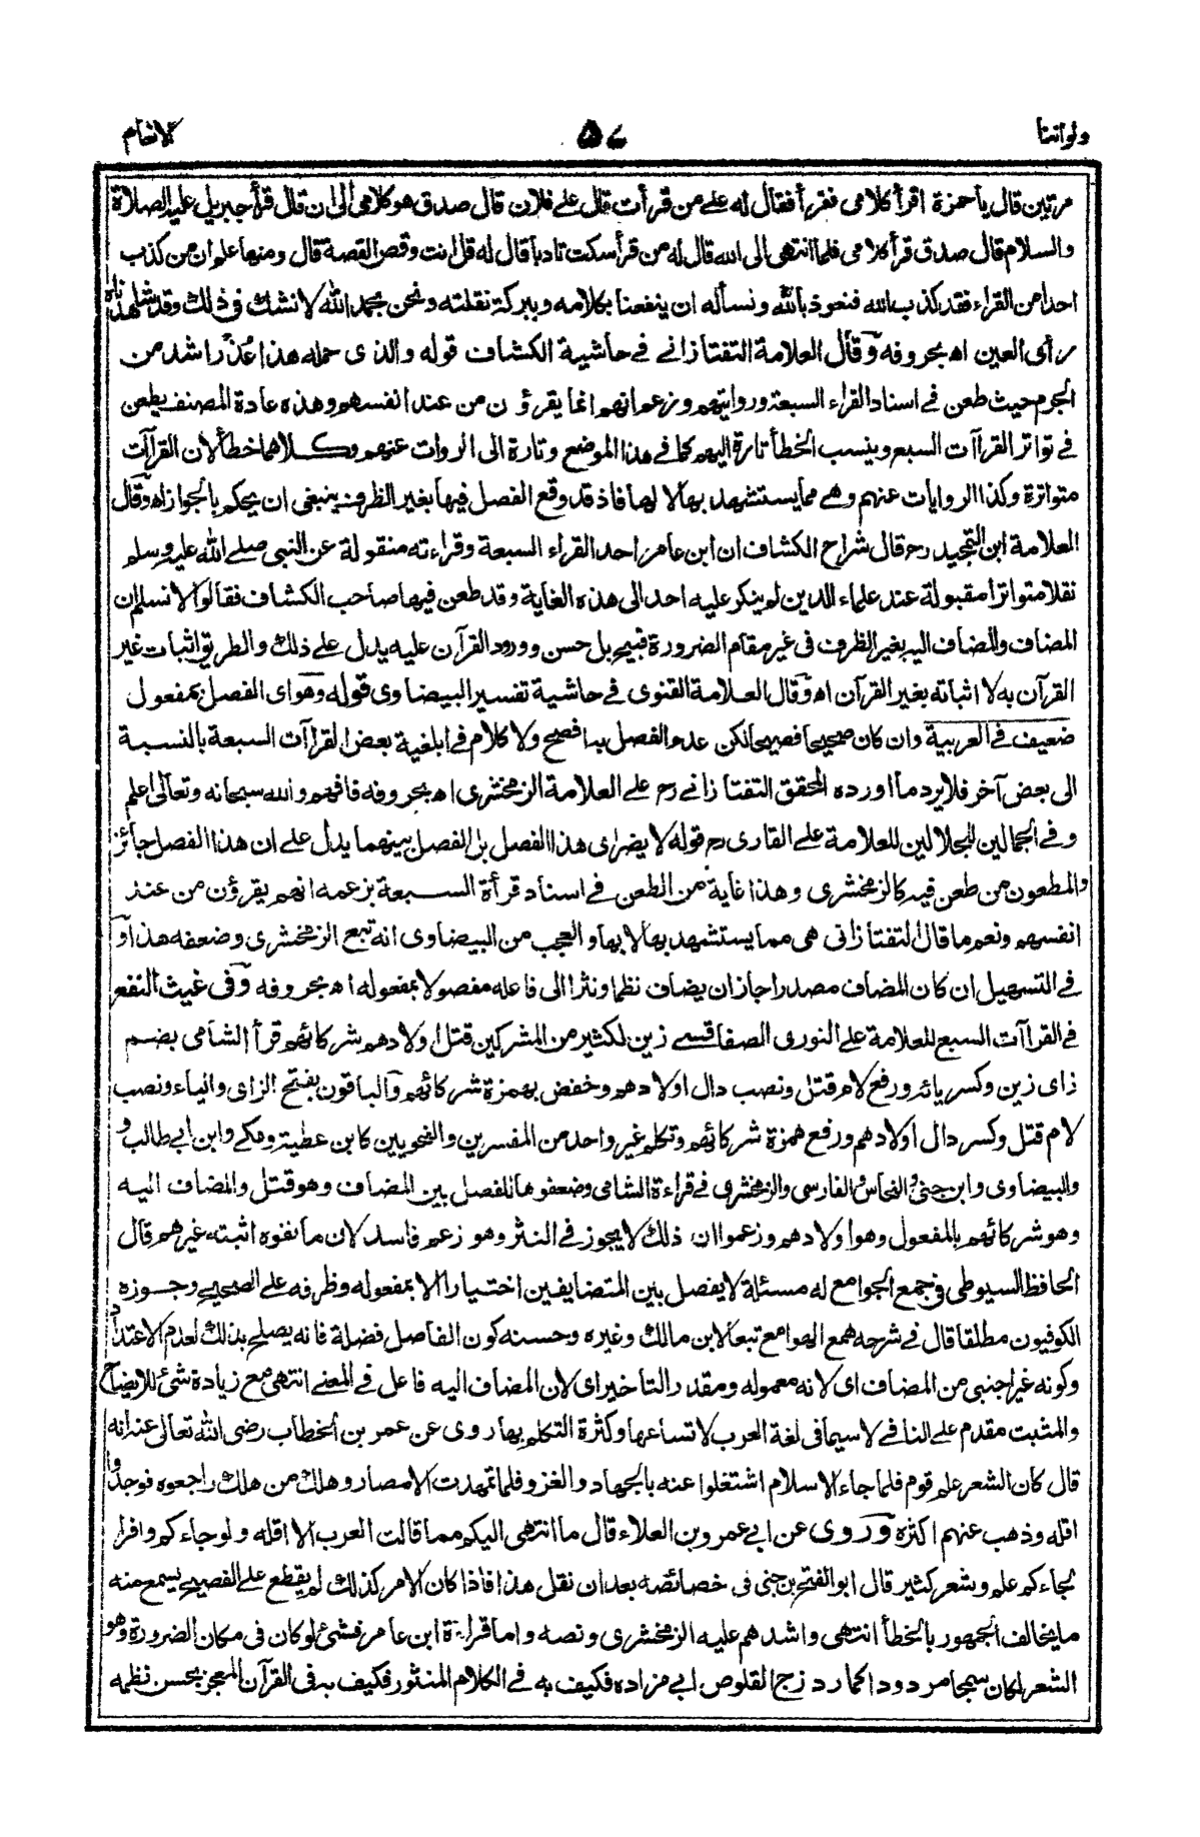 ولواننا ٥٧ الانعام
مرتين قال يا حمزة اقرأ كلامى فقرأ فقال له على من قرأت قال على فلان قال صدق هو كلامى الى ان قال قرأ جبريل عليه الصلاة
والسلام قال صدق قرأ كلامى فلما انتهى الى الله قال له من قرأ سكت تادبا قال له قل انت وقص القصة قال ومنها علم ان من كذب
احدا من القراء فقد كذب بالله فنعوذ بالله ونسأله ان ينفعنا بكلامه وببركة نقلته ونحن بحمد الله لا نشك فى ذلك وقد شاهدناه
رأى العين اه بحروفه وقال العلامة التفتازانى فى حاشية الكشاف قوله والذى حمله هذا عذر اشد من
الجرم حيث طعن فى اسناد القراء السبعة وروايتهم وزعم انهم انما يقرؤن من عند انفسهم وهذه عادة المصنف يطعن
فى تواتر القراآت السبع وينسب الخطأ تارة اليهم كما فى هذا الموضع وتارة الى الروات عنهم وكلاهما خطأ لان القراآت
متواترة وكذا الروايات عنهم وهى مما يستشهد بها لا لها فاذ قد وقع الفصل فيها بغير الظرف ينبغى ان يحكم بالجواز اه وقال
العلامة ابن التمجيد رح قال شراح الكشاف ان ابن عامر احد القراء السبعة وقراءته منقولة عن النبى صلى الله عليه وسلم
نقلا متواترا مقبولة عند علماء الدين لم ينكر عليه احد الى هذه الغاية وقد طعن فيها صاحب الكشاف فقالوا لا نسلم ان
المضاف والمضاف اليه بغير الظرف فى غير مقام الضرورة قبيح بل حسن وورود القرآن عليه يدل على ذلك والطريق اثبات غير
القرآن به لا اثباته بغير القرآن اه وقال العلامة القنوى فى حاشية تفسير البيضاوى قوله وهو اى الفصل بمفعول
ضعيف فى العربية وان كان صحيحا فصيحا لكن عدم الفصل به افصح ولا كلام فى ابلغية بعض القراآت السبعة بالنسبة
الى بعض آخر فلا يرد ما اورده المحقق التفتازانى رح على العلامة الزمخشرى اه بحروفه فافهم والله سبحانه وتعالى اعلم
وفى الجمالين للجلالين للعلامة على القارى رح قوله لا يضر اى هذا الفصل بل الفصل بينهما يدل على ان هذا الفصل جائز
والمطعون من طعن فيه كالزمخشرى وهذا غاية من الطعن فى اسناد قرأة السبعة بزعمه انهم يقرؤن من عند
انفسهم ونعم ما قال التفتازانى هى مما يستشهد بها لا بها والعجب من البيضاوى انه تبع الزمخشرى وضعفه هذا و
فى التسهيل ان كان المضاف مصدرا جاز ان يضاف نظما ونثرا الى فاعله مفصولا بمفعوله اه بحروفه وفى غيث النفع
فى القراآت السبع للعلامة على النورى الصفاقسى زين لكثير من المشركين قتل اولادهم شركائهم قرأ الشامى بضم
زاى زين وكسر يائه ورفع لام قتل ونصب دال اولادهم وخفض بهمزة شركائهم والباقون بفتح الزاى والياء ونصب
لام قتل وكسر دال اولادهم ورفع همزة شركائهم وتكلم غير واحد من المفسرين والنحويين كابن عطية ومكى وابن ابى طالب و
والبيضاوى وابن جنى والنحاس والفارسى والزمخشرى فى قراءة الشامى وضعفوها للفصل بين المضاف وهو قتل والمضاف اليه
وهو شركائهم بالمفعول وهو اولادهم وزعموا ان ذلك لا يجوز فى النثر وهو زعم فاسد لان ما نفوه اثبته غيرهم قال
الحافظ السيوطى فى جمع الجوامع له مسئلة لا يفصل بين المتضايفين اختيارا الا بمفعوله وظرفه على الصحيح وجوزه
الكوفيون مطلقا قال فى شرحه همع الهوامع تبعا لابن مالك وغيره وحسنه كون الفاصل فضلة فانه يصلح بذلك لعدم الاعتداد
وكونه غير اجنبى من المضاف اى لانه معموله ومقدر التاخير اى لان المضاف اليه فاعل فى المعنى انتهى مع زيادة شئ للايضاح
والمثبت مقدم على النافى لا سيما فى لغة العرب لاتساعها وكثرة التكلم بها روى عن عمر بن الخطاب رضى الله تعالى عنه انه
قال كان الشعر علم قوم فلما جاء الاسلام اشتغلوا عنه بالجهاد والغزو فلما تمهدت الامصار وهلك من هلك راجعوه فوجدوا
اقله وذهب عنهم اكثره وروى عن ابى عمرو بن العلاء قال ما انتهى اليكم مما قالت العرب الا اقله ولو جاءكم وافرا
لجاءكم علم وشعر كثير قال ابو الفتح بن جنى فى خصائصه بعد ان نقل هذا فاذا كان الامر كذلك لم يقطع على الفصيح يسمع منه
ما يخالف الجمهور بالخطأ انتهى واشدهم عليه الزمخشرى ونصه واما قراءة ابن عامر فشئ لو كان فى مكان الضرورة وهو
الشعر لكان سمجا مردودا كما رد زج القلوص ابى مزاده فكيف به فى الكلام المنثور فكيف به فى القرآن المعجز بحسن نظمه